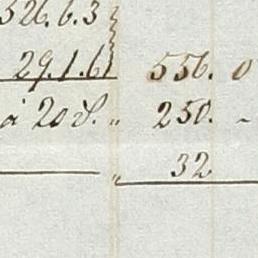 526. 6. 3
29. 1. 6 556. 0
à 20 d. " 250. -
" 32